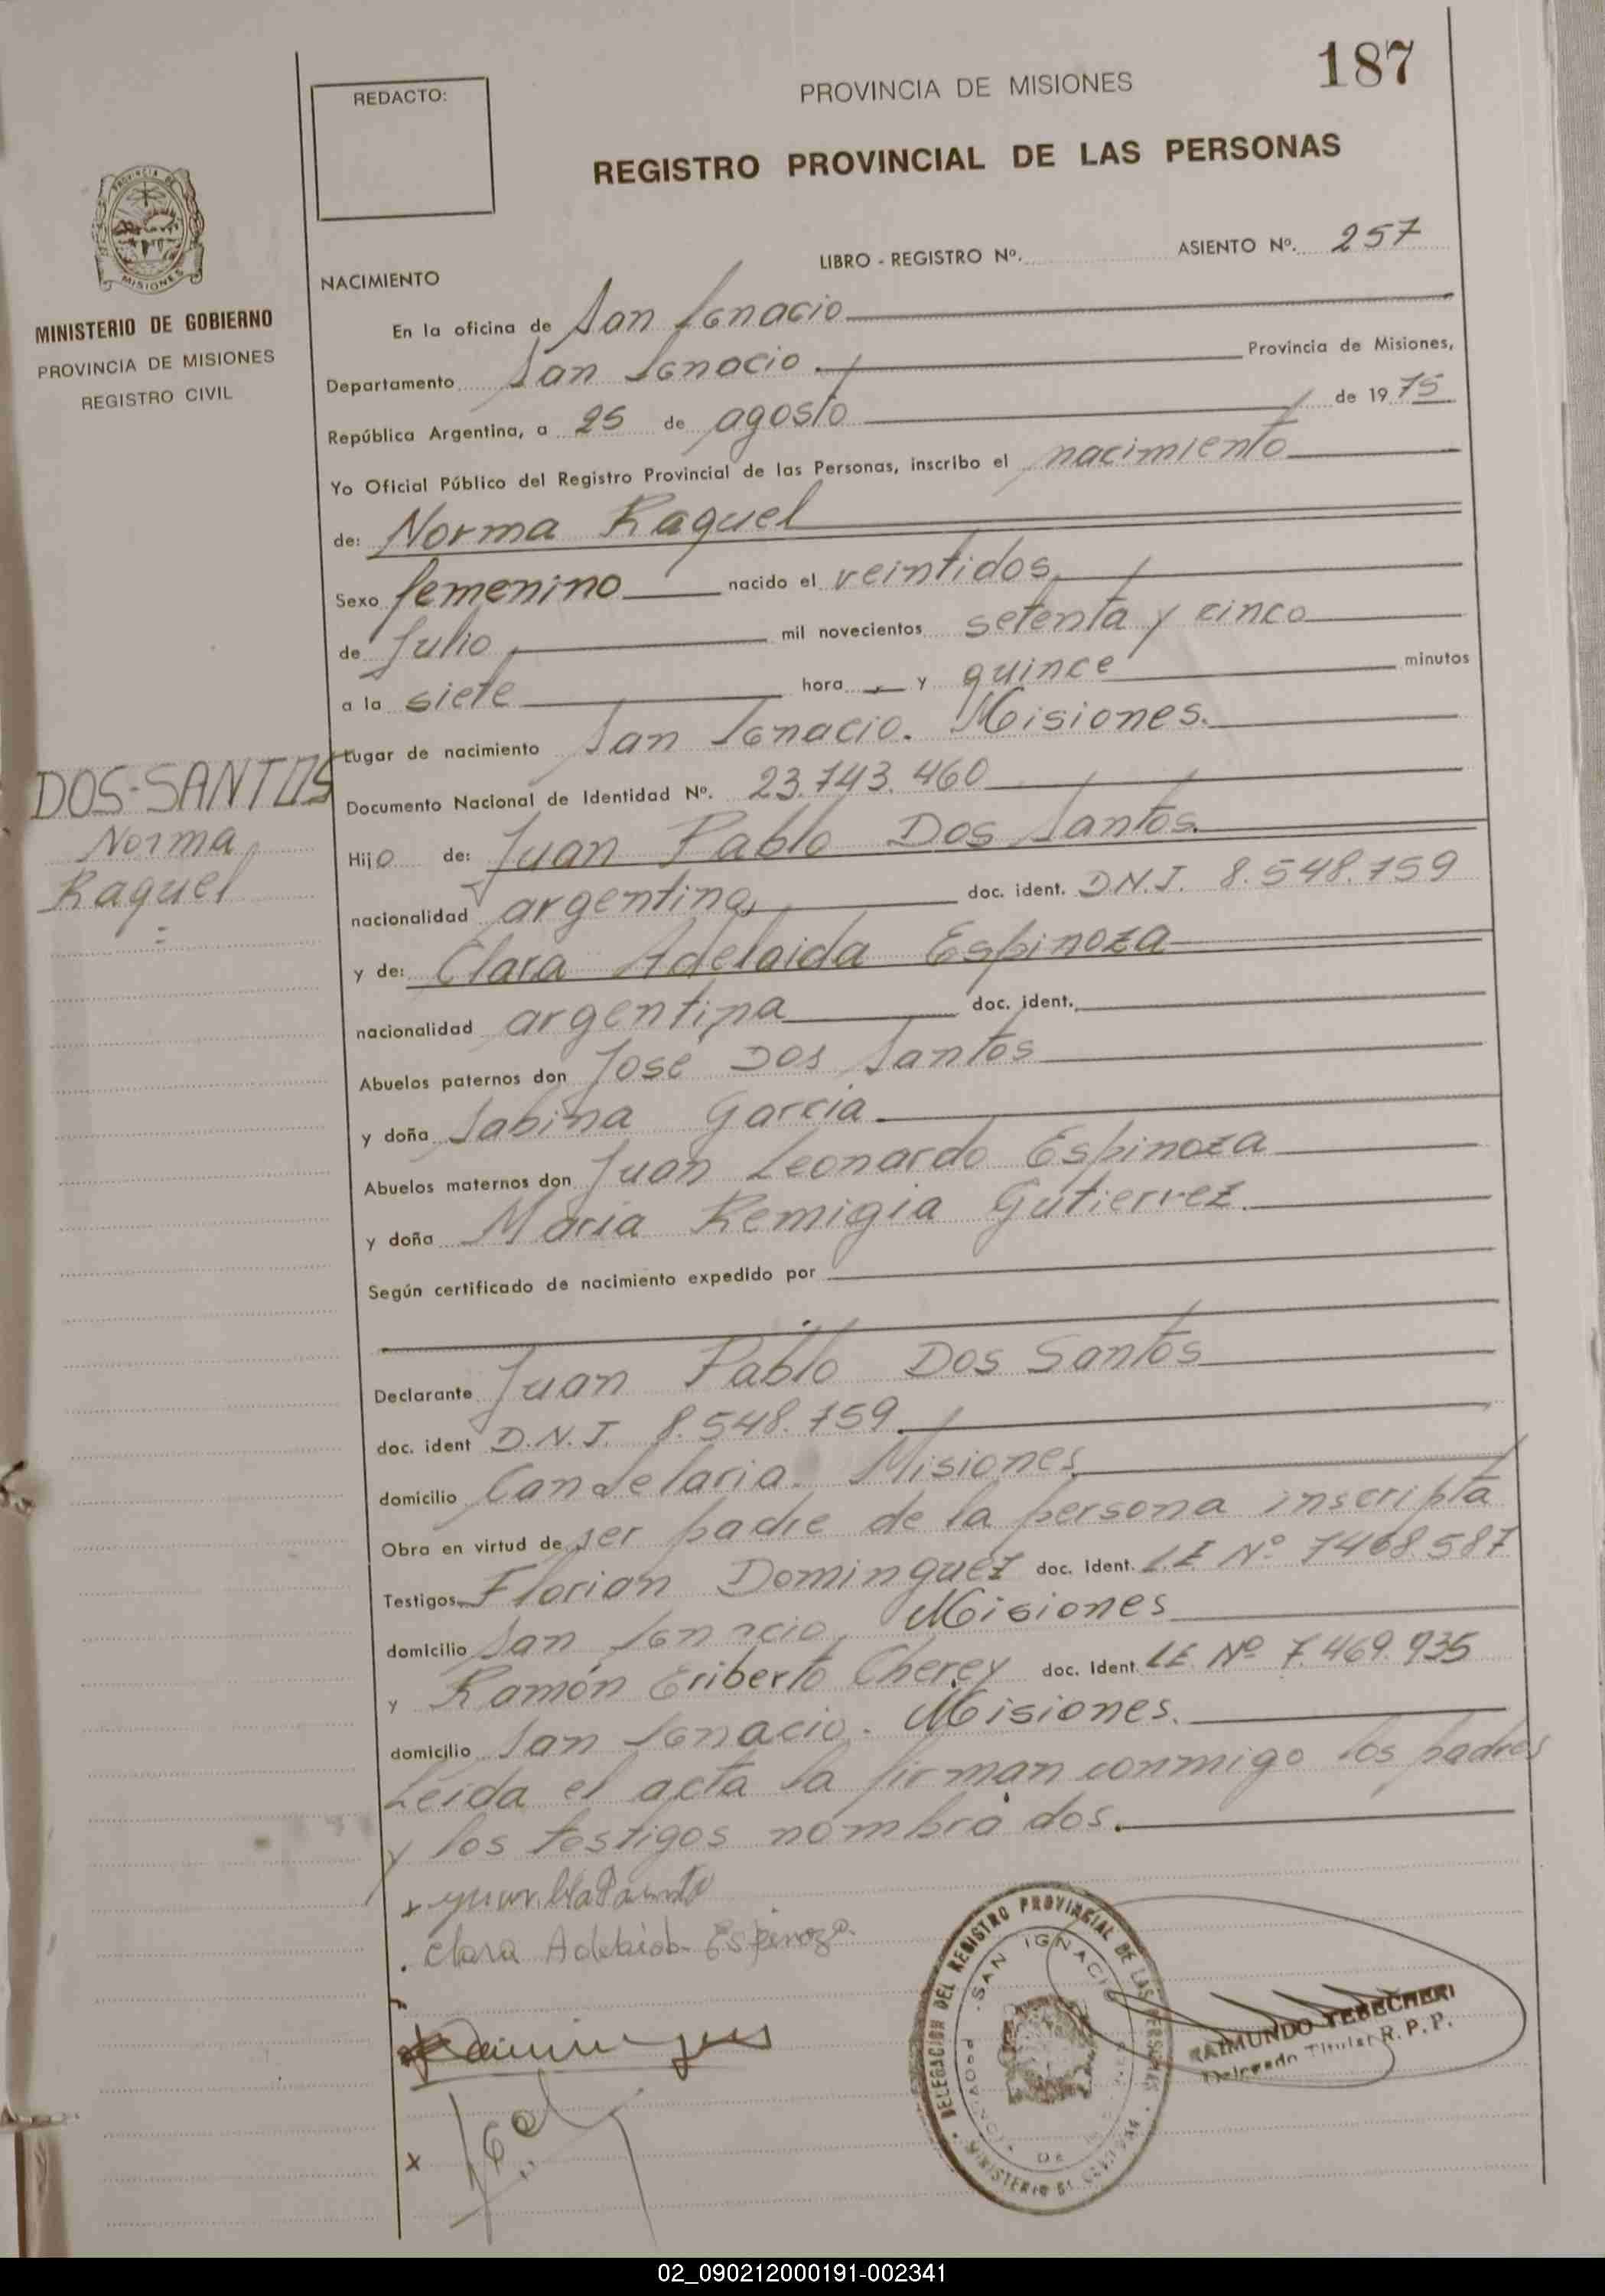 187
REDACTO:
PROVINCIA DE MISIONES
REGISTRO PROVINCIAL DE LAS PERSONAS
PROVINCIA DE
MISIONES
MINISTERIO DE GOBIERNO
PROVINCIA DE MISIONES
REGISTRO CIVIL
LIBRO - REGISTRO Nº. ASIENTO Nº. 257
NACIMIENTO
En la oficina de San Ignacio
Departamento San Ignacio. Provincia de Misiones,
República Argentina, a 25 de agosto de 1975
Yo Oficial Público del Registro Provincial de las Personas, inscribo el nacimiento
de: Norma Raquel
Sexo femenino nacido el veintidos
de Julio mil novecientos setenta y cinco
a la siete hora y quince minutos
Lugar de nacimiento San Ignacio. Misiones.
DOS-SANTOS
Norma
Raquel
Documento Nacional de Identidad Nº. 23.743.460
Hijo de: Juan Pablo Dos Santos.
nacionalidad argentina doc. ident. D.N.I. 8.548.759
y de: Clara Adelaida Espinoza
nacionalidad argentina doc. ident.
Abuelos paternos don José Dos Santos
y doña Sabina Garcia
Abuelos maternos don Juan Leonardo Espinoza
y doña Maria Remigia Gutierrez.
Según certificado de nacimiento expedido por
Declarante Juan Pablo Dos Santos
doc. ident D.N.I. 8.548.759.
domicilio Candelaria. Misiones
Obra en virtud de ser padre de la persona inscripta
Testigos Florian Dominguez doc. ident. L.E Nº 7468.587
domicilio San Ignacio. Misiones
y Ramón Eriberto Cherey doc. Ident. LE. Nº 7.469.935
domicilio San Ignacio. Misiones.
Leida el acta la firman conmigo los padres
y los testigos nombrados.
Clara Adelaida Espinoza
DELEGACION DEL REGISTRO PROVINCIAL DE LAS PERSONAS
SAN IGNACIO
MINISTERIO DE GOBIERNO
RAIMUNDO TEBECHERI
Delegado Titular R. P. P.
02_090212000191-002341